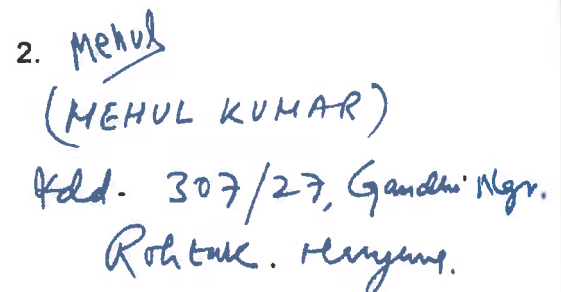 2. Mehul
(MEHUL KUMAR)
Add. 307/27, Gandhi Ngr.
Rohtak. Haryana.